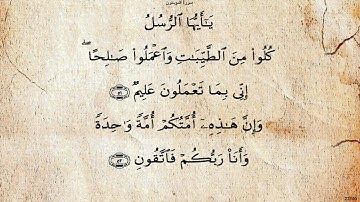 سورة المؤمنون
يَـٰٓأَيُّهَا ٱلرُّسُلُ
كُلُوا۟ مِنَ ٱلطَّيِّبَـٰتِ وَٱعْمَلُوا۟ صَـٰلِحًا ۖ
إِنِّى بِمَا تَعْمَلُونَ عَلِيمٌ ﴿٥١﴾
وَإِنَّ هَـٰذِهِۦٓ أُمَّتُكُمْ أُمَّةً وَٰحِدَةً
وَأَنَا۠ رَبُّكُمْ فَٱتَّقُونِ ﴿٥٢﴾